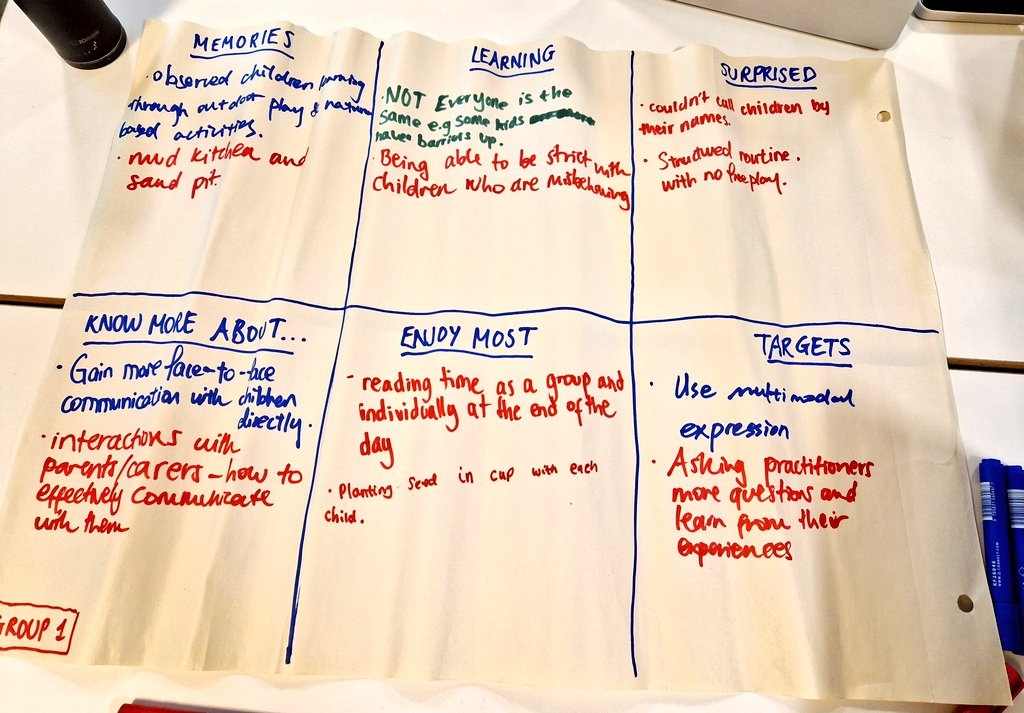 MEMORIES
· Observed children learning
through outdoor play & nature
based activities.
· mud kitchen and
sand pit.
LEARNING
· NOT Everyone is the
same e.g some kids
have barriers up.
· Being able to be strict with
children who are misbehaving
SURPRISED
· couldn't call children by
their names.
· Structured routine.
with no free play.
KNOW MORE ABOUT...
· Gain more face-to-face
communication with children
directly.
· interactions with
parents/carers - how to
effectively communicate
with them
ENJOY MOST
- reading time as a group and
individually at the end of the
day
· Planting seed in cup with each
child.
TARGETS
· Use multimodal
expression
· Asking practitioners
more questions and
learn from their
experiences
GROUP 1